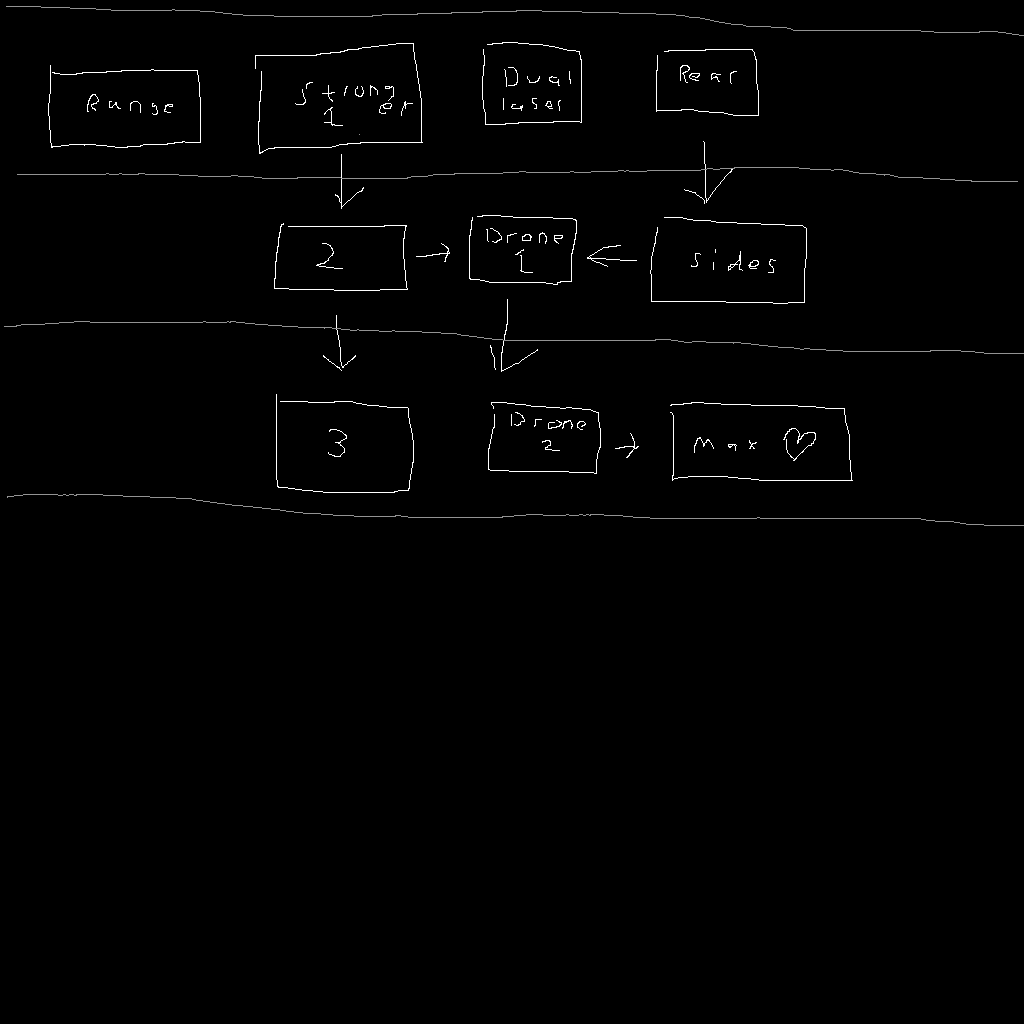 Range
Strong
1 er
Dual
laser
Rear
2
Drone
1
sides
3
Drone
2
Max ♡